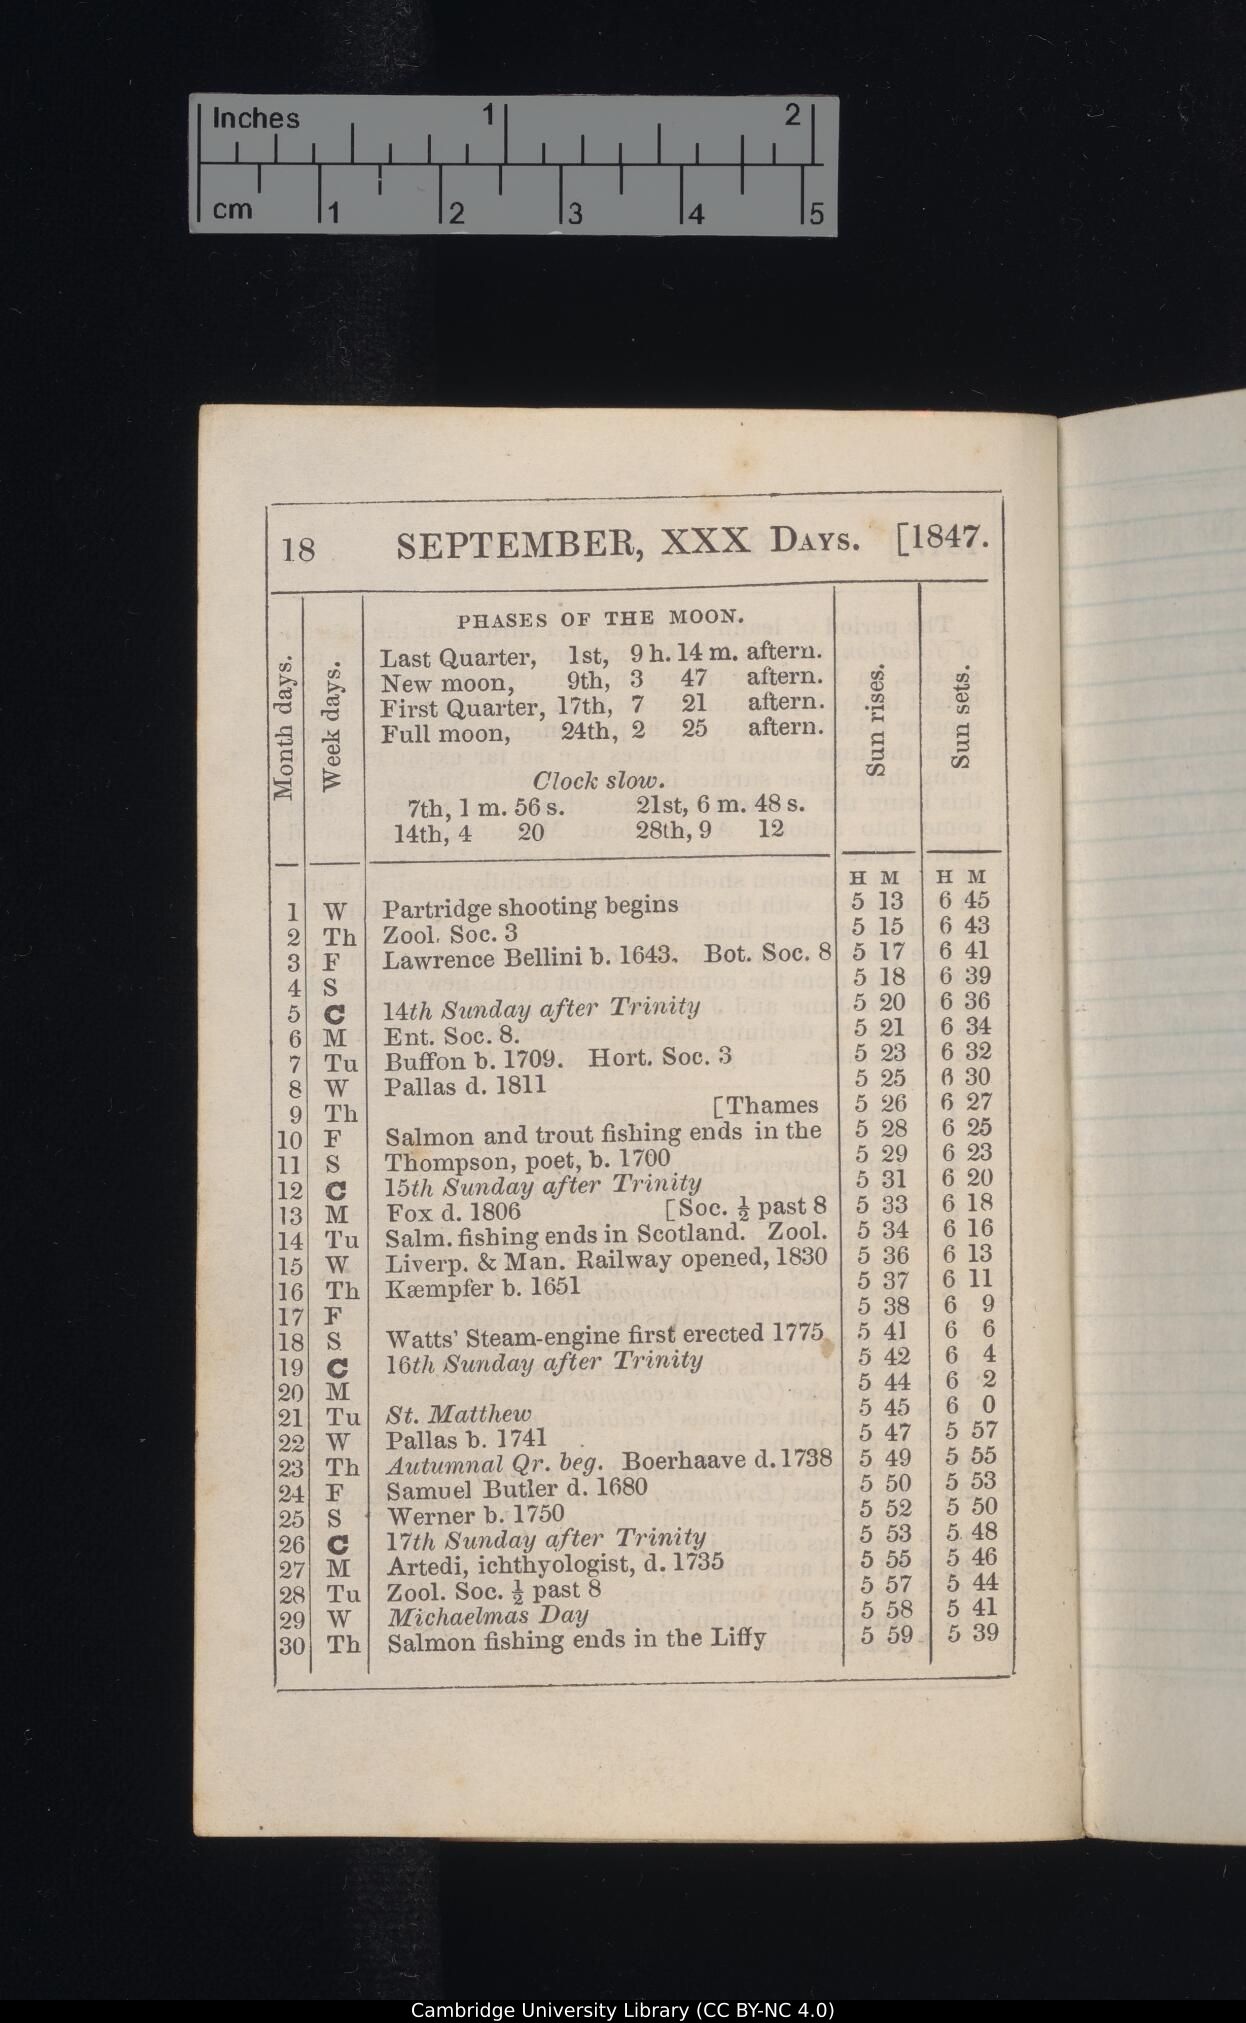 Inches 1 2
cm 1 2 3 4 5
18 SEPTEMBER, XXX DAYS. [1847.
Month days.
Week days.
PHASES OF THE MOON.
Last Quarter, 1st, 9 h. 14 m. aftern.
New moon, 9th, 3 47 aftern.
First Quarter, 17th, 7 21 aftern.
Full moon, 24th, 2 25 aftern.
Clock slow.
7th, 1 m. 56 s. 21st, 6 m. 48 s.
14th, 4 20 28th, 9 12
Sun rises.
Sun sets.
H M H M
1 W Partridge shooting begins 5 13 6 45
2 Th Zool. Soc. 3 5 15 6 43
3 F Lawrence Bellini b. 1643. Bot. Soc. 8 5 17 6 41
4 S 5 18 6 39
5 C 14th Sunday after Trinity 5 20 6 36
6 M Ent. Soc. 8. 5 21 6 34
7 Tu Buffon b. 1709. Hort. Soc. 3 5 23 6 32
8 W Pallas d. 1811 5 25 6 30
9 Th [Thames 5 26 6 27
10 F Salmon and trout fishing ends in the 5 28 6 25
11 S Thompson, poet, b. 1700 5 29 6 23
12 C 15th Sunday after Trinity 5 31 6 20
13 M Fox d. 1806 [Soc. ½ past 8 5 33 6 18
14 Tu Salm. fishing ends in Scotland. Zool. 5 34 6 16
15 W Liverp. & Man. Railway opened, 1830 5 36 6 13
16 Th Kæmpfer b. 1651 5 37 6 11
17 F 5 38 6 9
18 S Watts' Steam-engine first erected 1775 5 41 6 6
19 C 16th Sunday after Trinity 5 42 6 4
20 M 5 44 6 2
21 Tu St. Matthew 5 45 6 0
22 W Pallas b. 1741 5 47 5 57
23 Th Autumnal Qr. beg. Boerhaave d. 1738 5 49 5 55
24 F Samuel Butler d. 1680 5 50 5 53
25 S Werner b. 1750 5 52 5 50
26 C 17th Sunday after Trinity 5 53 5 48
27 M Artedi, ichthyologist, d. 1735 5 55 5 46
28 Tu Zool. Soc. ½ past 8 5 57 5 44
29 W Michaelmas Day 5 58 5 41
30 Th Salmon fishing ends in the Liffy 5 59 5 39
Cambridge University Library (CC BY-NC 4.0)